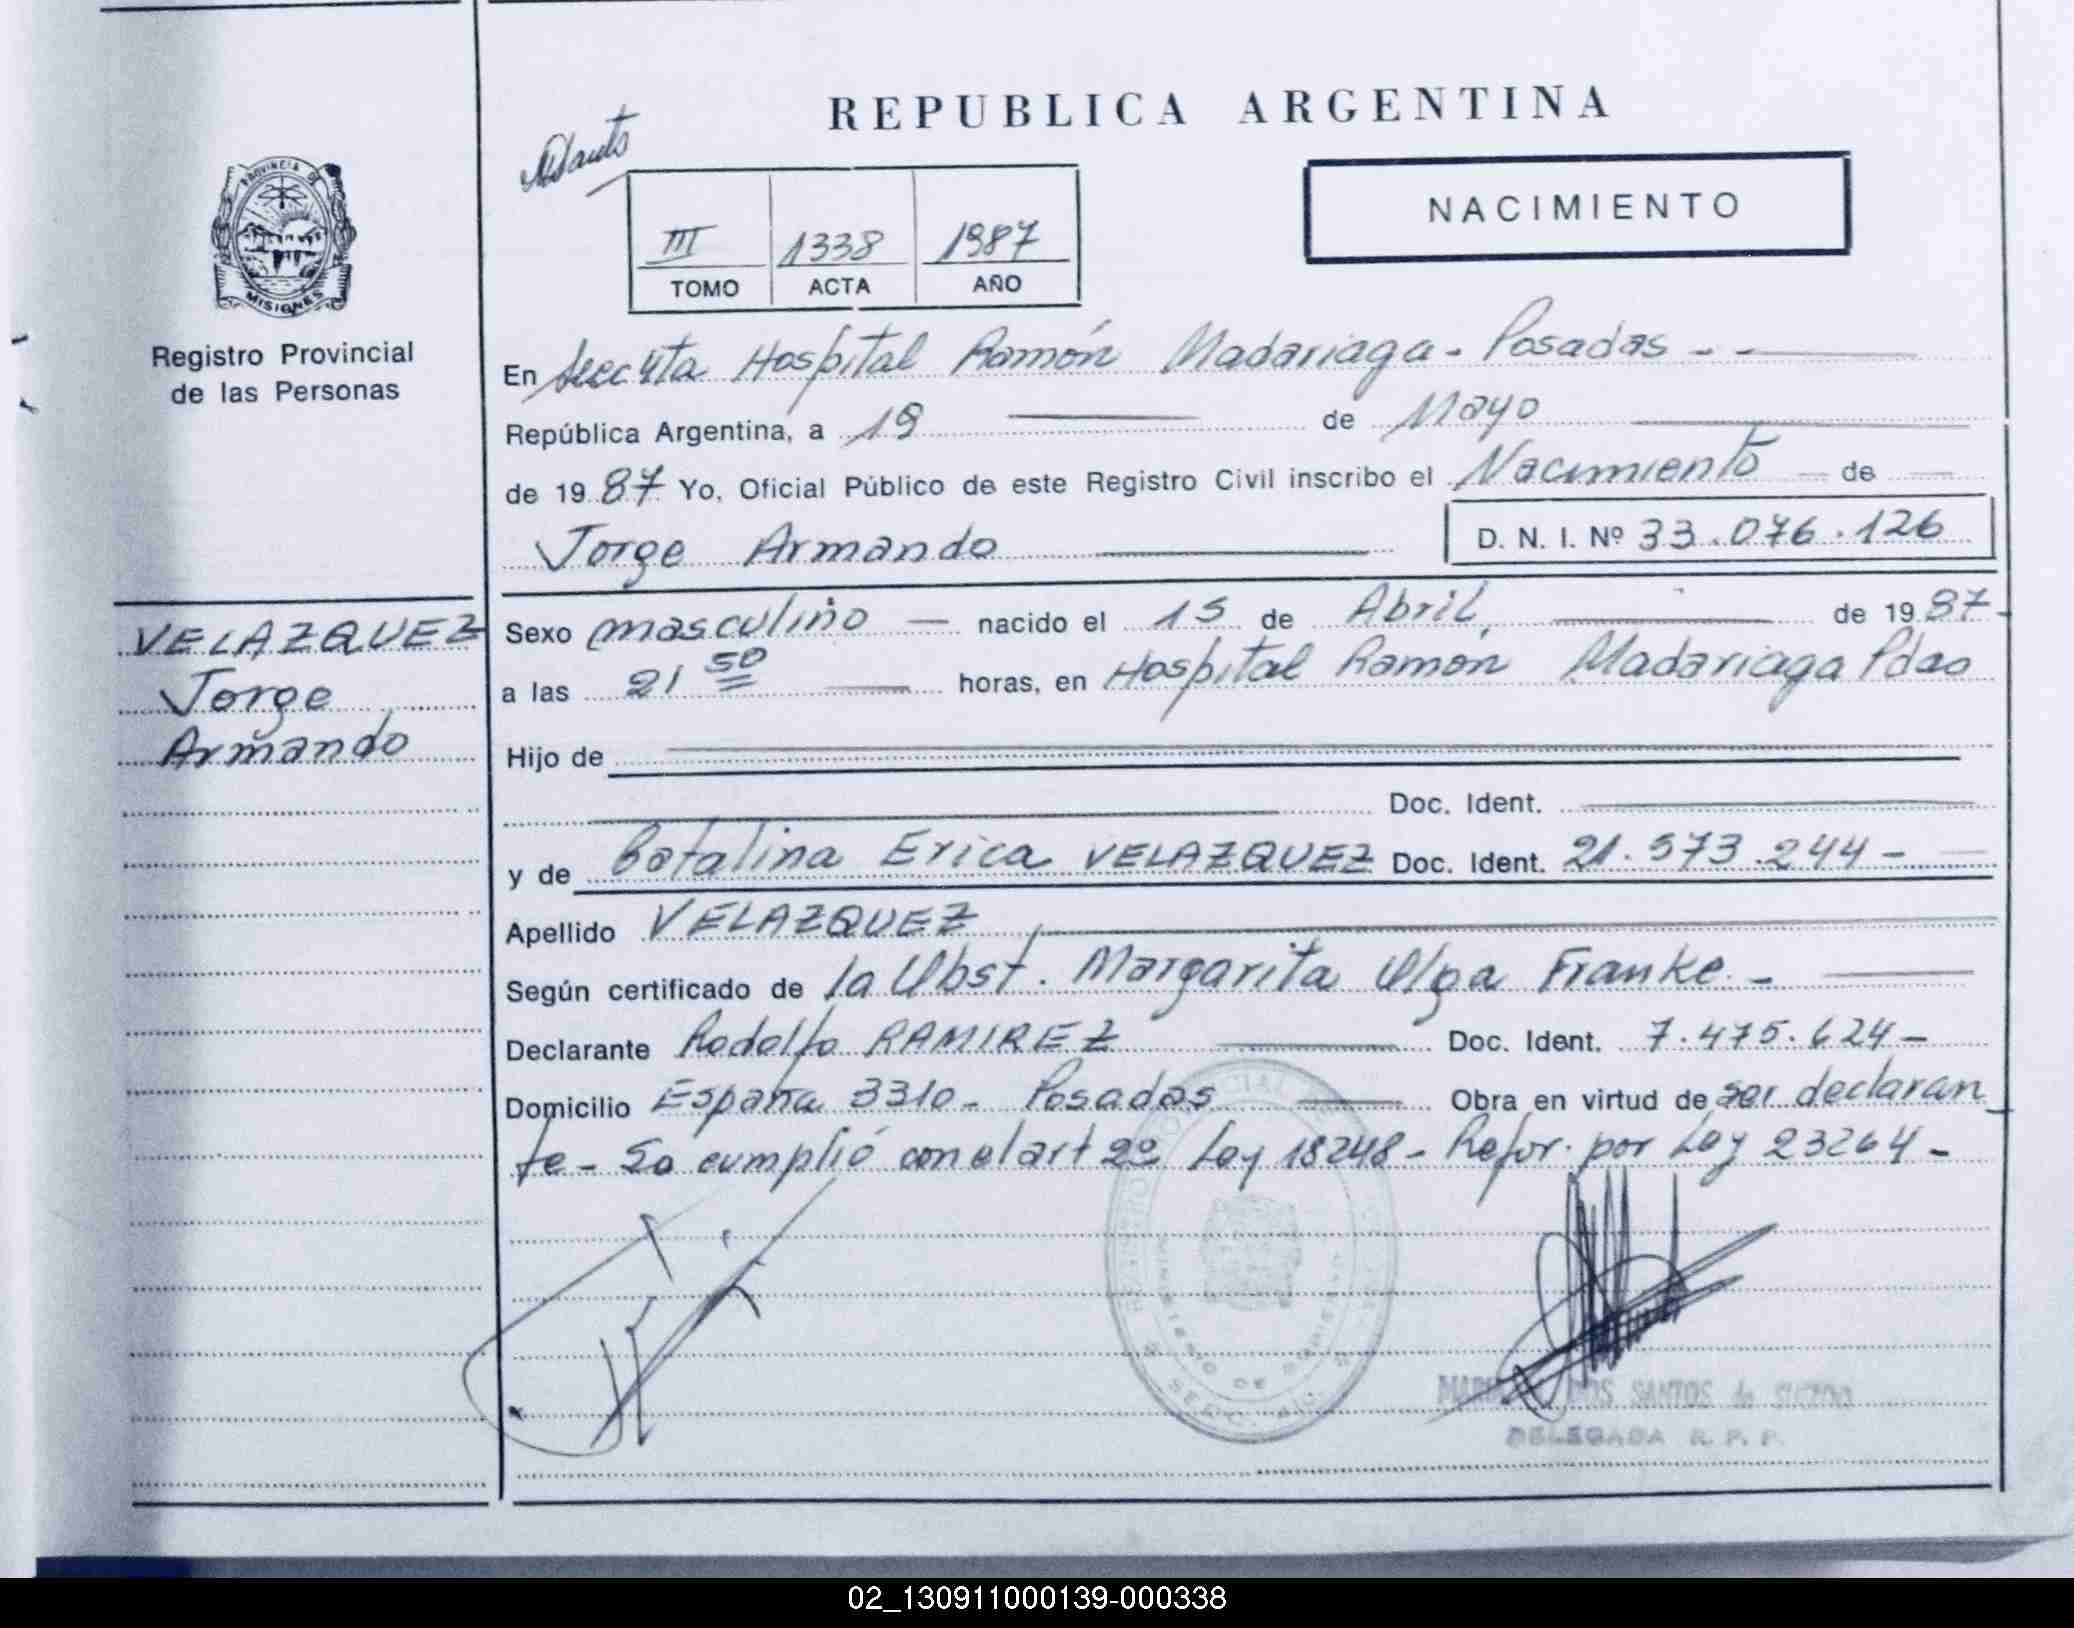 REPUBLICA ARGENTINA
NACIMIENTO
III 1338 1987
TOMO ACTA AÑO
PROVINCIA DE
MISIONES
Registro Provincial
de las Personas
En Secc 4ta Hospital Ramón Madariaga - Posadas - -
República Argentina, a 19 de Mayo
de 1987 Yo, Oficial Público de este Registro Civil inscribo el Nacimiento de
Jorge Armando D. N. I. Nº 33.076.126
VELAZQUEZ
Jorge
Armando
Sexo masculino nacido el 15 de Abril, de 1987-
a las 21 50 horas, en Hospital Ramón Madariaga Pdas
Hijo de
Doc. Ident.
y de Catalina Erica VELAZQUEZ Doc. Ident. 21.573.244 -
Apellido VELAZQUEZ,
Según certificado de la Obst. Margarita Olga Franke. -
Declarante Rodolfo RAMIREZ Doc. Ident. 7.475.624 -
Domicilio España 3310 - Posadas Obra en virtud de ser declaran
te - Se cumplió con el art 2º Ley 18248 - Refor. por Ley 23264 -
DOS SANTOS de
DELEGADA R. P. P.
02_130911000139-000338